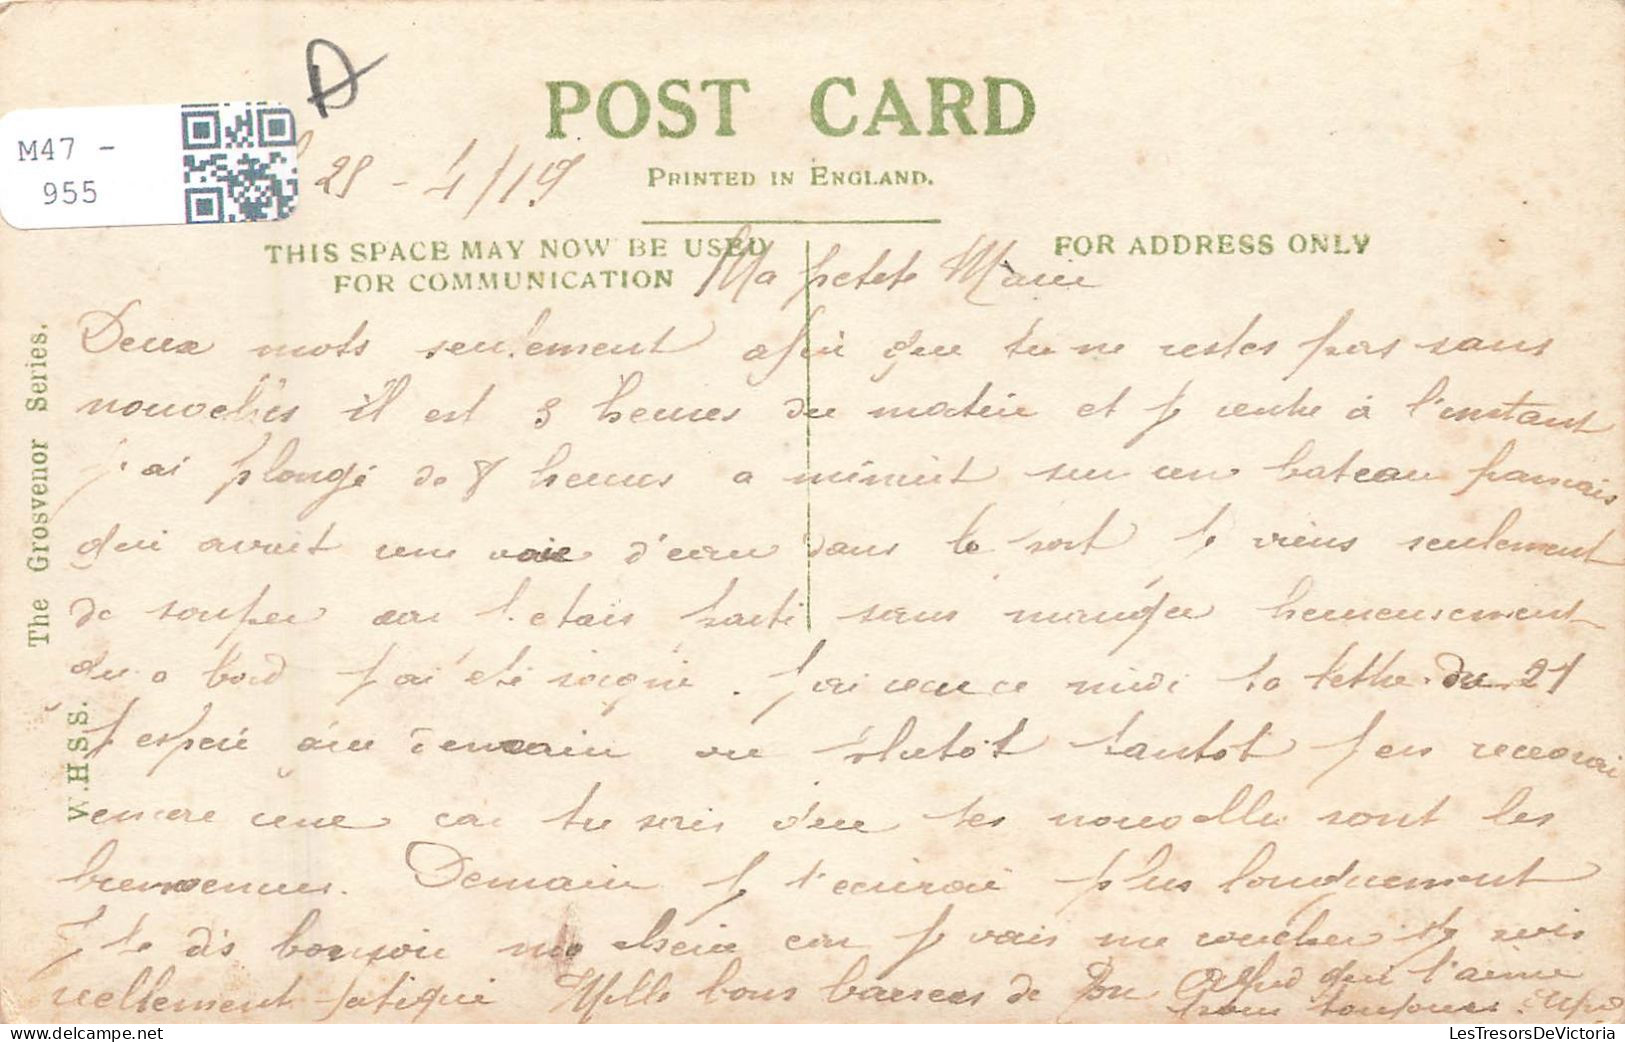 D
M47 -
955
28 - 4/19
POST CARD
PRINTED IN ENGLAND.
THIS SPACE MAY NOW BE USED
FOR COMMUNICATION
FOR ADDRESS ONLY
The Grosvenor Series.
W.H.S.S.
Ma petite Marie
Deux mots seulement afin que tu ne restes pas sans
nouvelles il est 3 heures du matin et je rentre à l'instant
j'ai plongé de 8 heures a minuit sur un bateau français
qui avait une voie d'eau dans le port je viens seulement
de souper car j'etais parti sans manger heureusement
qu'a bord j'ai été soigné. J'ai recu ce midi ta lettre du 21
J'espere que demain ou plutôt tantot j'en recevrai
encore une car tu sais que tes nouvelles sont les
bienvenues. Demain je t'ecrirai plus longuement
Je te dis bonsoir ma cherie car je vais me coucher je suis
tellement fatigué Mille bons baisers de ton Alfred qui t'aime
pour toujours.
LesTresorsDeVictoria